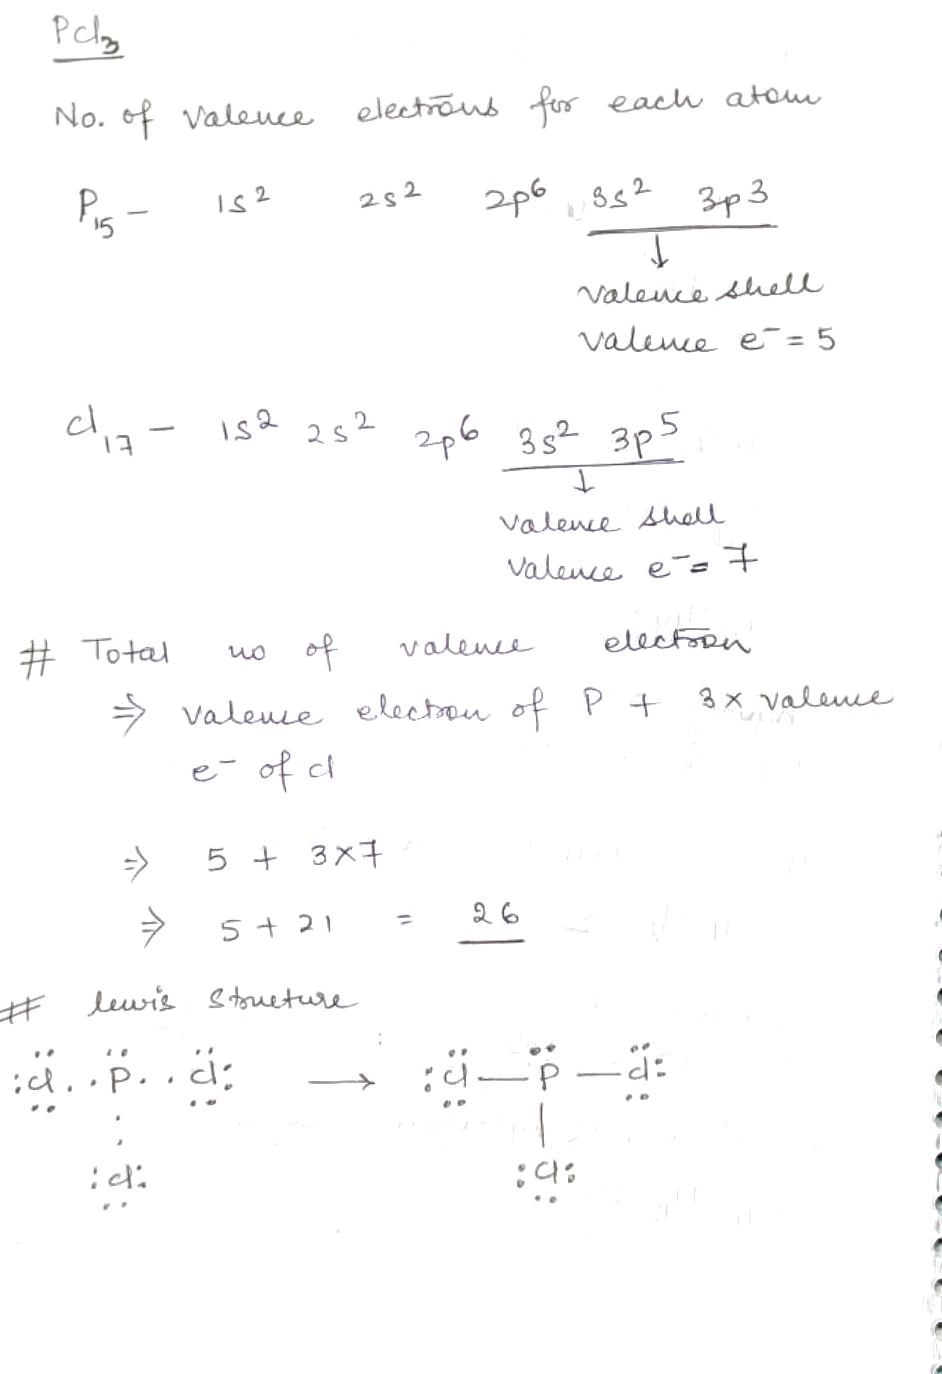 PCl₃
No. of valence electrons for each atom
P₁₅ - 1s² 2s² 2p⁶ 3s² 3p³
↓
valence shell
valence e⁻ = 5
Cl₁₇ - 1s² 2s² 2p⁶ 3s² 3p⁵
↓
valence shell
valence e⁻ = 7
# Total no of valence electron
⇒ valence electron of P + 3 x valence
e⁻ of Cl
⇒ 5 + 3×7
⇒ 5 + 21 = 26
# lewis structure
:Cl. .P. .Cl: → :Cl—P—Cl:
:Cl: :Cl: